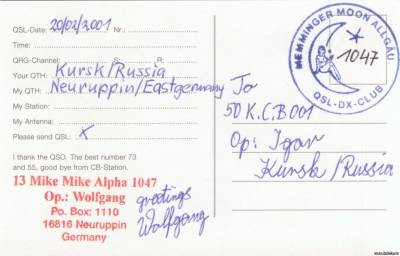 QSL-Date: 20/02/2001 Nr.:
Time:
QRG-Channel: S: R:
Your QTH: Kursk/Russia
My QTH: Neuruppin/Eastgermany
My Station:
My Antenna:
Please send QSL: X
I thank the QSO. The best number 73
and 55, good bye from CB-Station.
13 Mike Mike Alpha 1047
Op.: Wolfgang
Po. Box: 1110
16816 Neuruppin
Germany
greetings
Wolfgang
MEMMINGER MOON ALLGÄU
1047
QSL-DX-CLUB
To
50 K.C.B 001
Op: Igor
Kursk/Russia